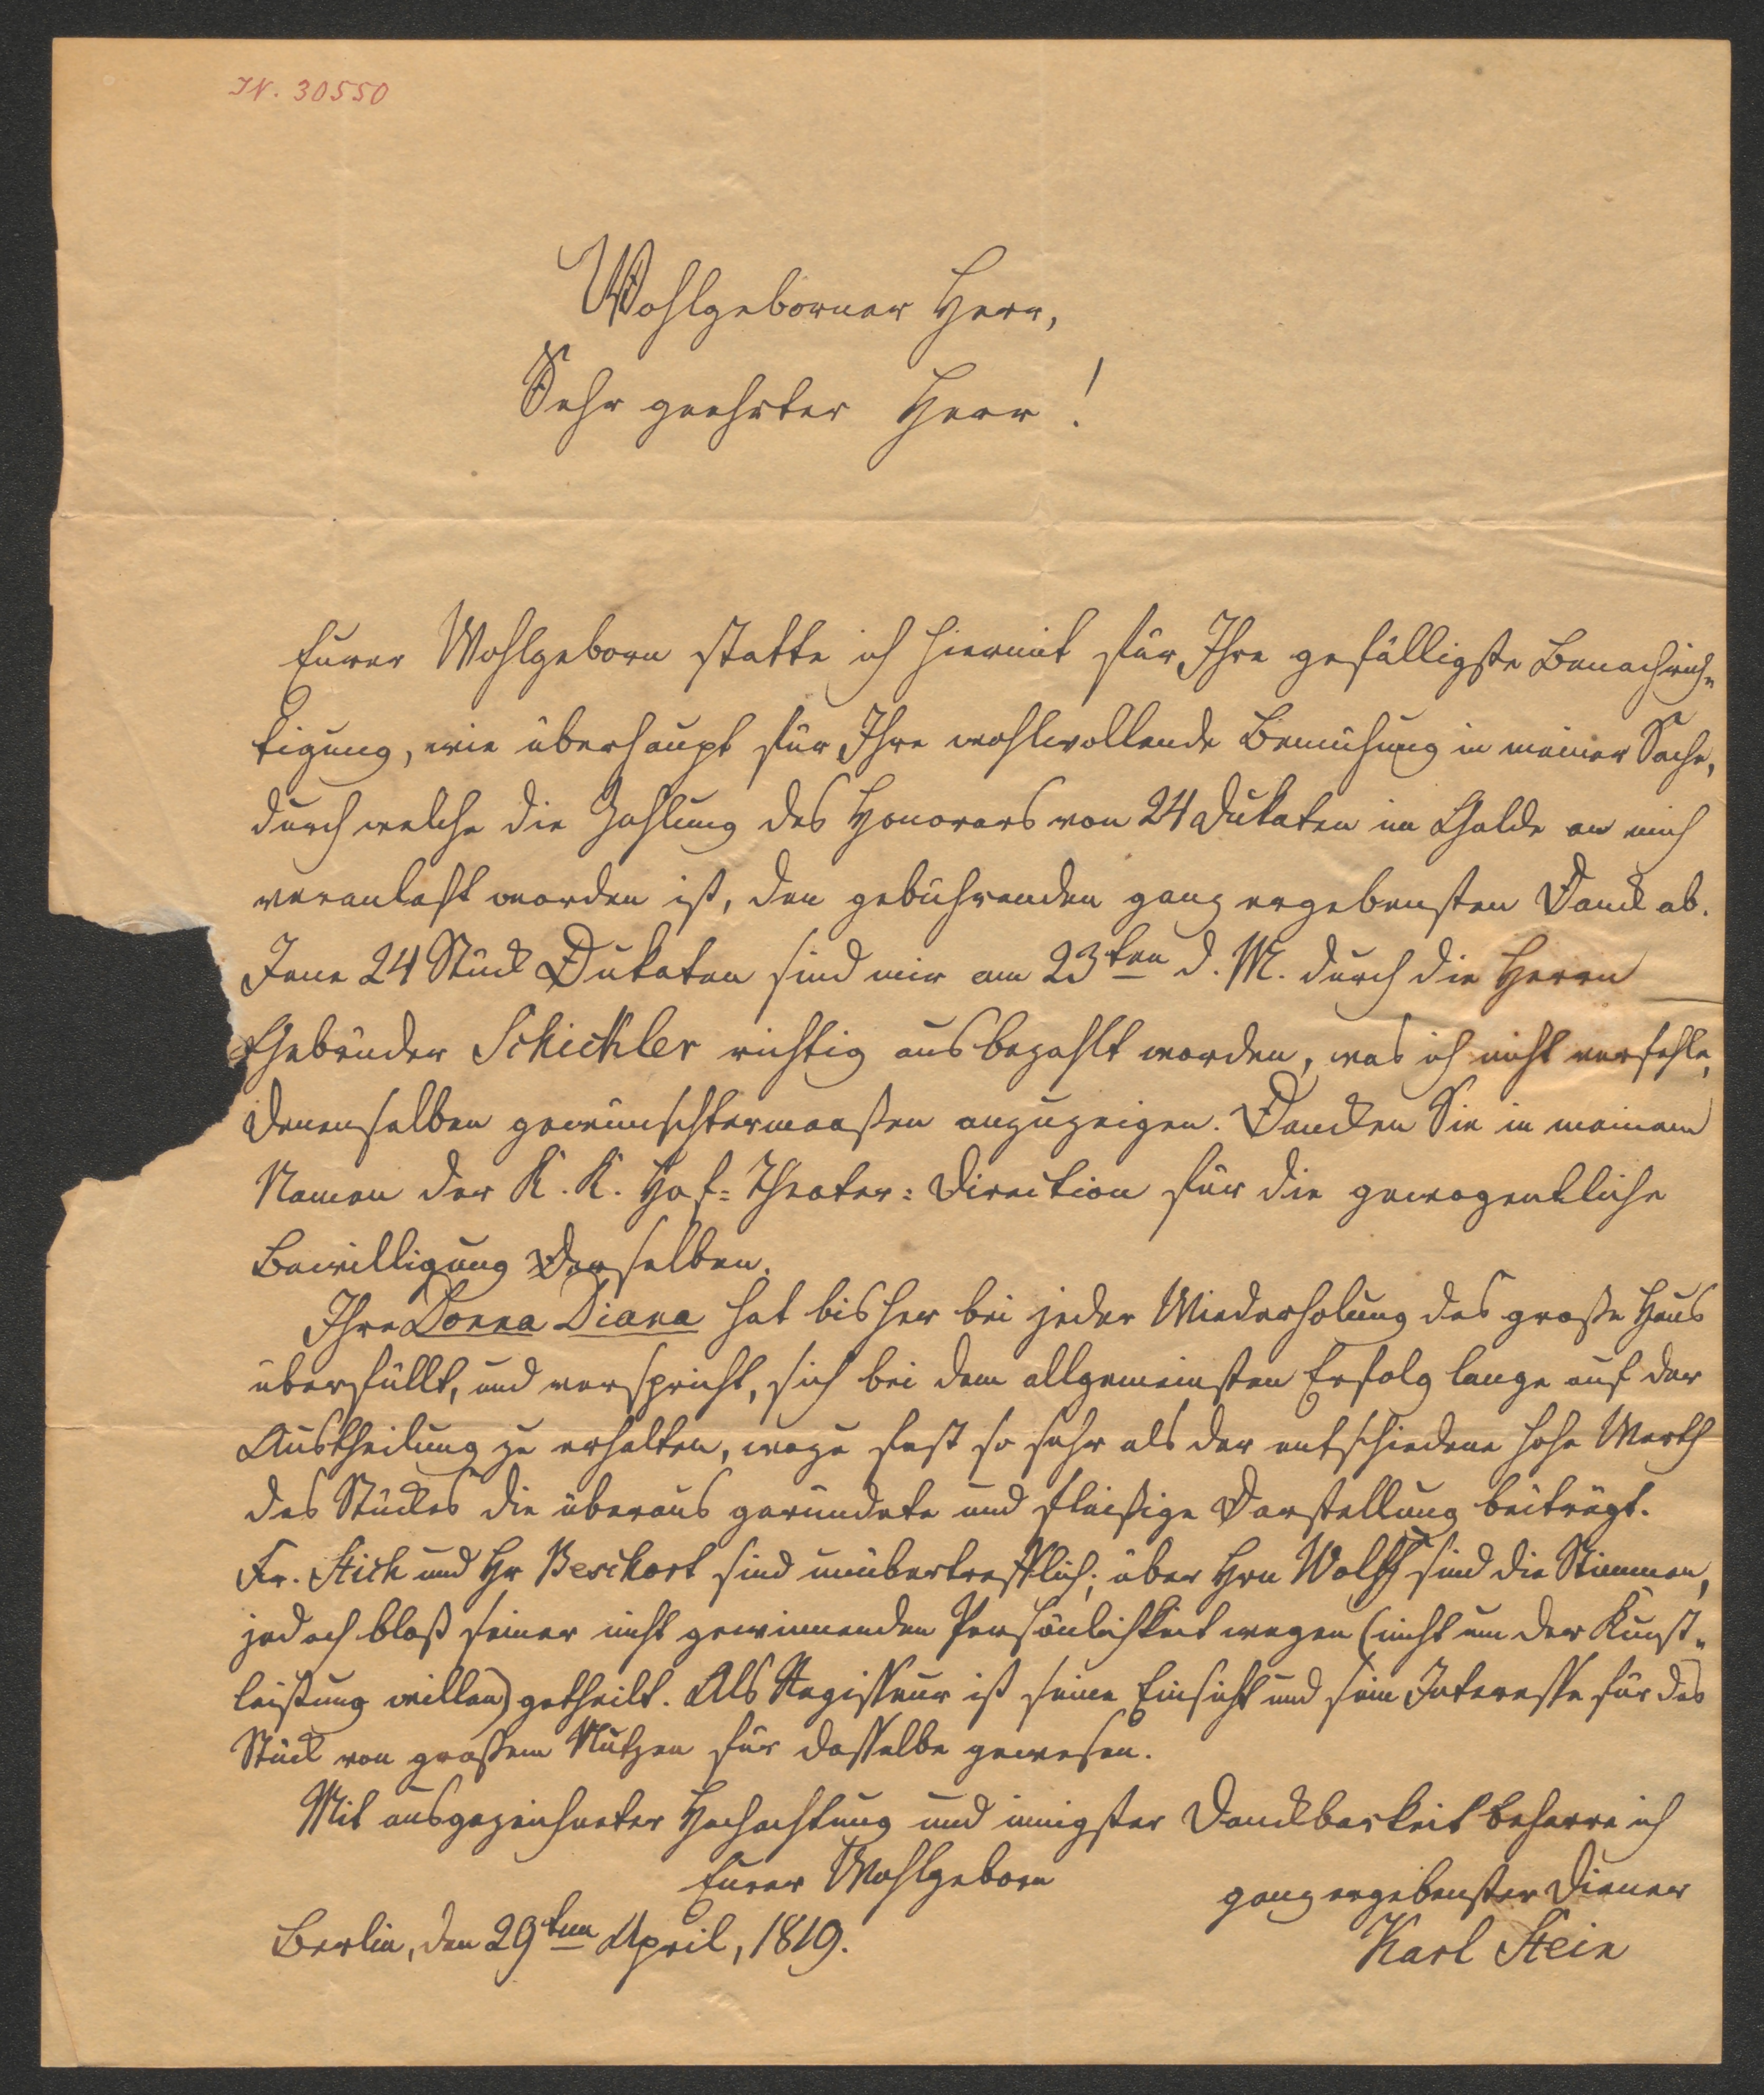 IN. 30550
Wohlgeborner Herr,
Sehr geehrter Herr!
Eurer Wohlgeborn statte ich hiermit für Ihre gefälligste Benachrich-
tigung, wie überhaupt für Ihre wohlwollende Bemühung in meiner Sache,
durch welche die Zahlung des Honorars von 24 Dukaten in Golde an mich
veranlaßt worden ist, den gebührenden ganz ergebensten Dank ab.
Jene 24 Stück Dukaten sind mir am 23ten d. M. durch die Herrn
Gebrüder Schickler richtig ausbezahlt worden, was ich nicht verfehle,
Denenselben gewünschtermaaßen anzuzeigen. Danken Sie in meinem
Namen der K. K. Hof-Theater-Direction für die gewogentliche
Bewilligung Desselben.
Ihre Donna Diana hat bisher bei jeder Wiederholung das große Haus
überfüllt, und verspricht, sich bei dem allgemeinsten Erfolg lange auf der
Austheilung zu erhalten, wozu fast so sehr als der entschiedene hohe Werth
des Stückes die überaus gerundete und fleißige Darstellung beiträgt.
Fr. Stich und Hr Beschort sind unübertrefflich; über Hrn Wolff sind die Stimmen,
jedoch bloß seiner nicht gewinnenden Persönlichkeit wegen (nicht um der Kunst-
leistung willen) getheilt. Als Regisseur ist seine Einsicht und sein Interesse für das
Stück von großem Nutzen für dasselbe gewesen.
Mit ausgezeichneter Hochachtung und innigster Dankbarkeit beharre ich
Eurer Wohlgeborn
ganz ergebenster Diener
Berlin, den 29ten April, 1819.
Karl Stein